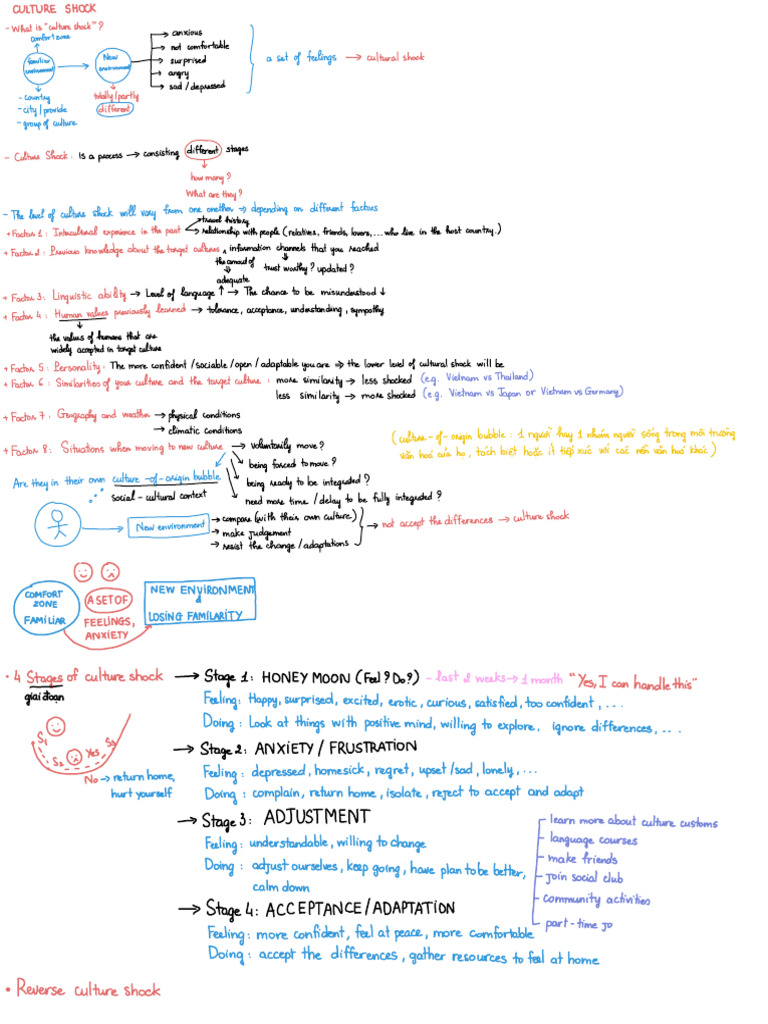 CULTURE SHOCK
- What is "culture shock"?
comfort zone
familiar environment
New environment
anxious
not comfortable
surprised
angry
sad / depressed
a set of feelings → cultural shock
- country
- city / provide
- group of culture
totally / partly
different
- Culture Shock: is a process → consisting different stages
how many?
What are they?
- The level of culture shock will vary from one onether ⇒ depending on different factors
+ Factor 1: Intercultural experience in the past
travel history
relationship with people (relatives, friends, lovers, ... who live in the host country.)
+ Factor 2: Previous knowledge about the target cultures, information channels that you reached
the amount of
trust worthy? updated?
adequate
+ Factor 3: Linguistic ability → Level of language ↑ → The chance to be misunderstood ↓
+ Factor 4: Human values previously learned → tolerance, acceptance, understanding, sympathy
the values of humans that are
widely accepted in target culture
+ Factor 5: Personality: The more confident / sociable / open / adaptable you are ⇒ the lower level of cultural shock will be
+ Factor 6: Similarities of your culture and the target culture: more similarity → less shocked (e.g. Vietnam vs Thailand)
less similarity → more shocked (e.g. Vietnam vs Japan or Vietnam vs Germany)
+ Factor 7: Geography and weather → physical conditions
→ climatic conditions
+ Factor 8: Situations when moving to new culture → voluntarily move?
being forced to move?
being ready to be integrated?
need more time / delay to be fully integrated?
(culture-of-origin bubble: 1 người hay 1 nhóm người sống trong môi trường
văn hoá của họ, tách biệt hoặc ít tiếp xúc với các nền văn hoá khác)
Are they in their own culture-of-origin bubble
social-cultural context
New environment
→ compare (with their own culture)
→ make judgement
→ resist the change / adaptations
→ not accept the differences → culture shock
COMFORT ZONE
FAMILIAR
A SET OF
FEELINGS,
ANXIETY
NEW ENVIRONMENT
&
LOSING FAMILARITY
• 4 Stages of culture shock
giai đoạn
S1
S2
Yes
S3
No → return home,
hurt yourself
→ Stage 1: HONEY MOON (Feel? Do?) - last 2 weeks → 1 month "Yes, I can handle this"
Feeling: Happy, surprised, excited, erotic, curious, satisfied, too confident, ...
Doing: Look at things with positive mind, willing to explore, ignore differences, ...
→ Stage 2: ANXIETY / FRUSTRATION
Feeling: depressed, homesick, regret, upset / sad, lonely, ...
Doing: complain, return home, isolate, reject to accept and adapt
→ Stage 3: ADJUSTMENT
Feeling: understandable, willing to change
Doing: adjust ourselves, keep going, have plan to be better,
calm down
learn more about culture customs
language courses
make friends
join social club
community activities
part-time jo
→ Stage 4: ACCEPTANCE / ADAPTATION
Feeling: more confident, feel at peace, more comfortable
Doing: accept the differences, gather resources to feel at home
• Reverse culture shock